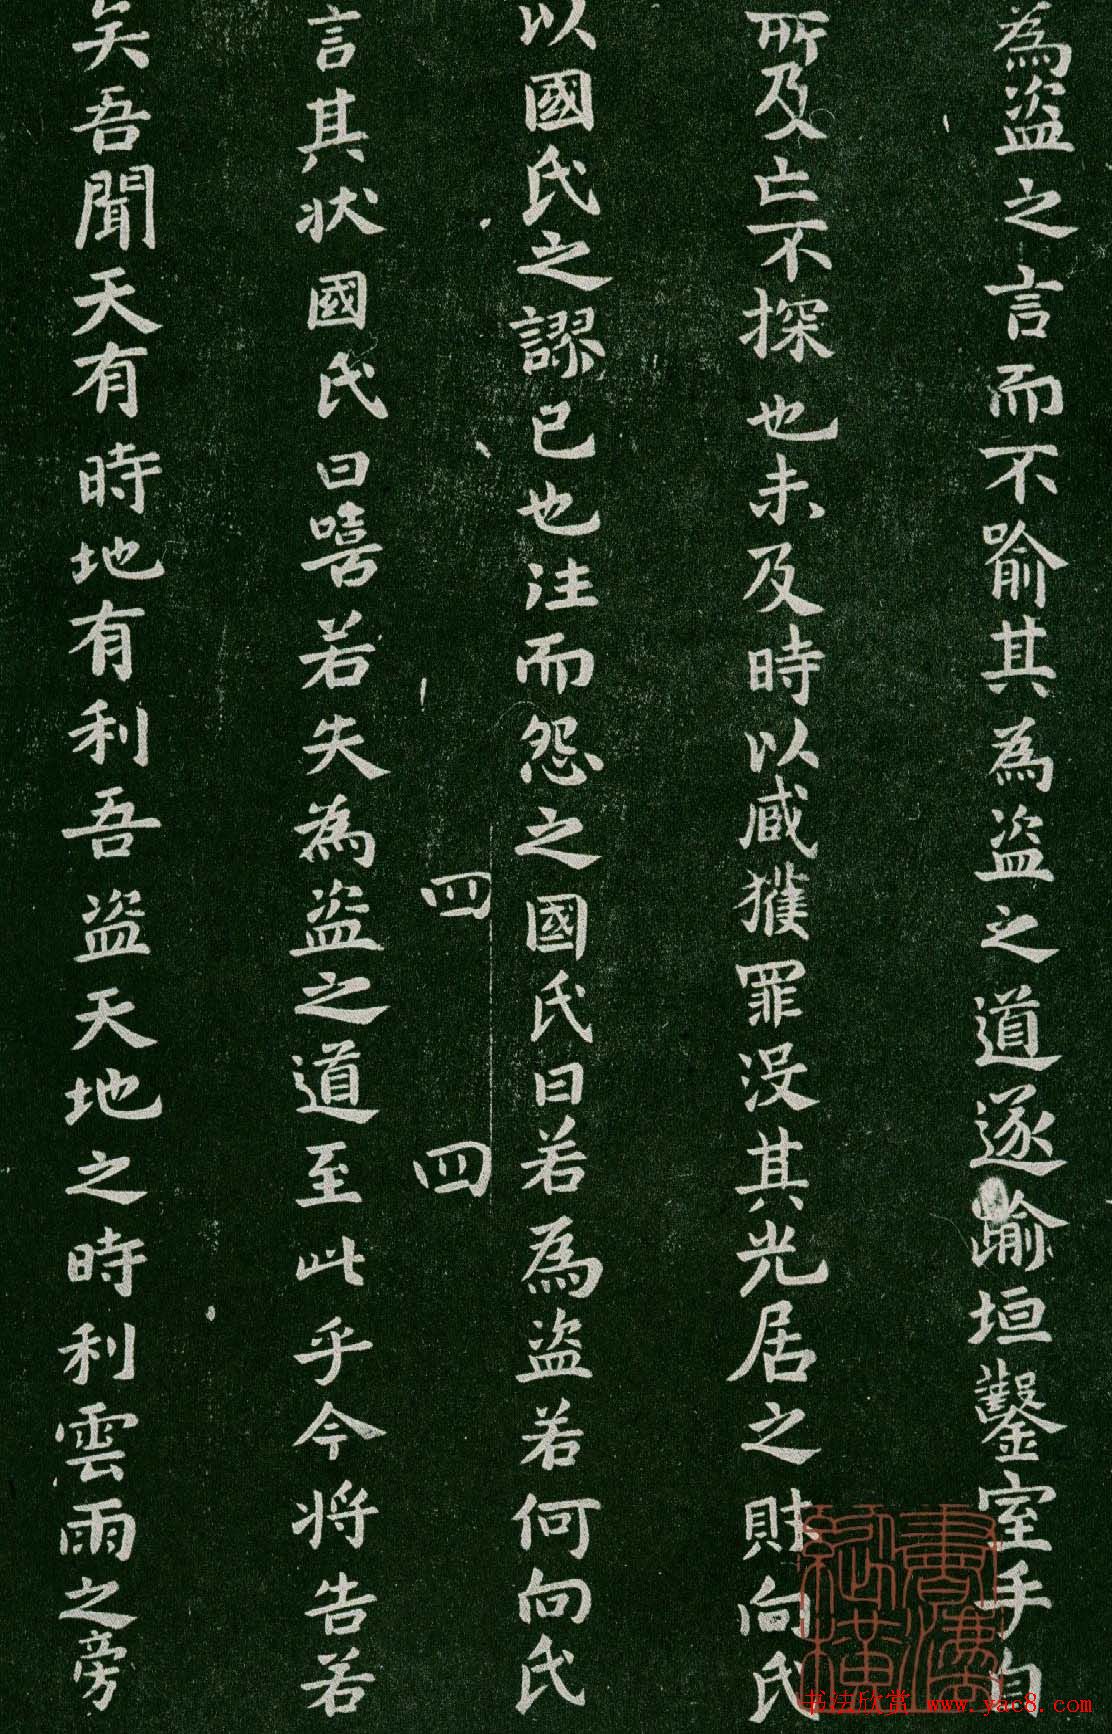 為盜之言而不喻其為盜之道遂踰垣鑿室手目
所及亡不探也未及時以臧獲罪沒其先居之財向氏
以國氏之謬己也往而怨之國氏曰若為盜若何向氏
四 四
言其狀國氏曰嘻若失為盜之道至此乎今將告若
矣吾聞天有時地有利吾盜天地之時利雲雨之旁
书法欣赏 www.yac8.com